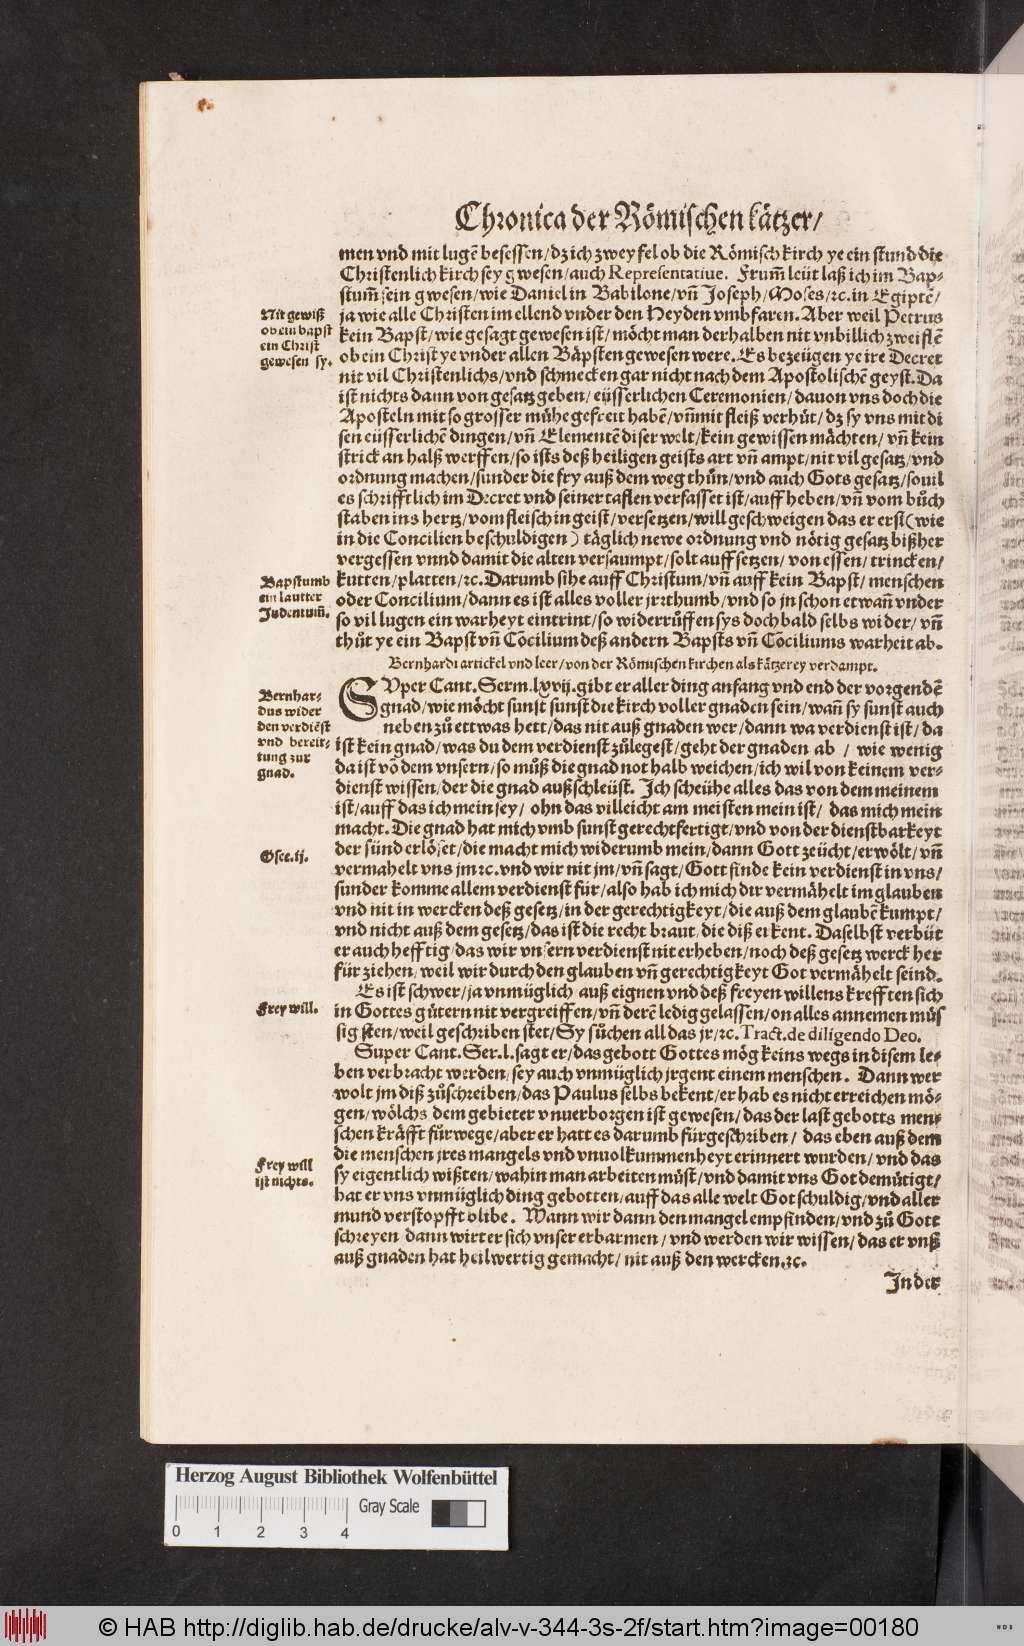 Chronica der Römischen kätzer/
men vnd mit lugē besessen/dz ich zweyfel ob die Römisch kirch ye ein stund die
Christenlich kirch sey gwesen/auch Representatiue. Frum̄ leüt laß ich im Bap-
stum̄ sein gwesen/wie Daniel in Babilone/vn̄ Joseph/Moses/ꝛc. in Egiptē/
ja wie alle Christen im ellend vnder den Heyden vmbfaren. Aber weil Petrus
kein Bapst/wie gesagt gewesen ist/möcht man derhalben nit vnbillich zweiflē
ob ein Christ ye vnder allen Bäpsten gewesen were. Es bezeügen ye ire Decret
nit vil Christenlichs/vnd schmecken gar nicht nach dem Apostolischē geyst. Da
ist nichts dann von gesatz geben/eüsserlichen Ceremonien/dauon vns doch die
Aposteln mit so grosser mühe gefreit habē/vn̄ mit fleiß verhüt/dz sy vns mit di
sen eüsserlichē dingen/vn̄ Elementē diser welt/kein gewissen mächten/vn̄ kein
strick an halß werffen/so ists deß heiligen geists art vn̄ ampt/nit vil gesatz/vnd
ordnung machen/sunder die fry auß dem weg thůn/vnd auch Gots gesatz/souil
es schrifftlich im Decret vnd seiner taflen verfasset ist/auff heben/vn̄ vom bůch
staben ins hertz/vom fleisch in geist/versetzen/will geschweigen das er erst(wie
in die Concilien beschuldigen) täglich newe ordnung vnd nötig gesatz bißher
vergessen vnnd damit die alten versaumpt/solt auff setzen/von essen/trincken/
kutten/platten/ꝛc. Darumb sihe auff Christum/vn̄ auff kein Bapst/menschen
oder Concilium/dann es ist alles voller jrrthumb/vnd so jn schon etwan̄ vnder
so vil lugen ein warheyt eintrint/so widerrůffen sys doch bald selbs wider/vn̄
thůt ye ein Bapst vn̄ Cōcilium deß andern Bapsts vn̄ Cōciliums warheit ab.
Nit gewiß
ob ein bapst
ein Christ
gewesen sy.
Bapstumb
ein lautter
Judentum̄.
Bernhardi artickel vnd leer/von der Römischen kirchen als kätzerey verdampt.
SVper Cant. Serm. lxvij. gibt er aller ding anfang vnd end der vorgendē
gnad/wie möcht sunst sunst die kirch voller gnaden sein/wan̄ sy sunst auch
neben zů ettwas hett/das nit auß gnaden wer/dann wa verdienst ist/da
ist kein gnad/was du dem verdienst zůlegest/geht der gnaden ab / wie wenig
da ist vō dem vnsern/so můß die gnad not halb weichen/ich wil von keinem ver-
dienst wissen/der die gnad außschleüst. Ich scheühe alles das von dem meinem
ist/auff das ich mein sey/ ohn das villeicht am meisten mein ist/ das mich mein
macht. Die gnad hat mich vmb sunst gerechtfertigt/vnd von der dienstbarkeyt
der sünd erlöset/die macht mich widerumb mein/dann Gott zeücht/erwölt/vn̄
vermahelt vns jm ꝛc. vnd wir nit jm/vn̄ sagt/Gott finde kein verdienst in vns/
sunder komme allem verdienst für/also hab ich mich dir vermähelt im glauben
vnd nit in wercken deß gesetz/in der gerechtigkeyt/die auß dem glaubē kumpt/
vnd nicht auß dem gesetz/das ist die recht braut/die diß erkent. Daselbst verbüt
er auch hefftig/das wir vnsern verdienst nit erheben/noch deß gesetz werck her
für ziehen/weil wir durch den glauben vn̄ gerechtigkeyt Got vermähelt seind.
Es ist schwer/ja vnmüglich auß eignen vnd deß freyen willens krefften sich
in Gottes gütern nit vergreiffen/vn̄ derē ledig gelassen/on alles annemen müs
sig sten/weil geschriben stet/Sy sůchen all das jr/ꝛc. Tract. de diligendo Deo.
Super Cant. Ser. l. sagt er/das gebott Gottes mög keins wegs in disem le-
ben verbracht werden/sey auch vnmüglich jrgent einem menschen. Dann wer
wolt jm diß zůschreiben/das Paulus selbs bekent/er hab es nicht erreichen mö-
gen/wölchs dem gebieter vnuerborgen ist gewesen/das der last gebotts men-
schen kräfft fürwege/aber er hatt es darumb fürgeschriben/ das eben auß dem
die menschen jres mangels vnd vnuolkummenheyt erinnert wurden/vnd das
sy eigentlich wißten/wahin man arbeiten müst/vnd damit vns Got demütigt/
hat er vns vnmüglich ding gebotten/auff das alle welt Got schuldig/vnd aller
mund verstopfft blibe. Wann wir dann den mangel empfinden/vnd zů Gott
schreyen dann wirt er sich vnser erbarmen/vnd werden wir wissen/das er vnß
auß gnaden hat heilwertig gemacht/nit auß den wercken.ꝛc.
Bernhar-
dus wider
den verdiēst
vnd bereit-
tung zur
gnad.
Osee. ij.
Frey will.
Frey will
ist nichts.
In der
Herzog August Bibliothek Wolfenbüttel
Gray Scale
0 1 2 3 4
© HAB http://diglib.hab.de/drucke/alv-v-344-3s-2f/start.htm?image=00180